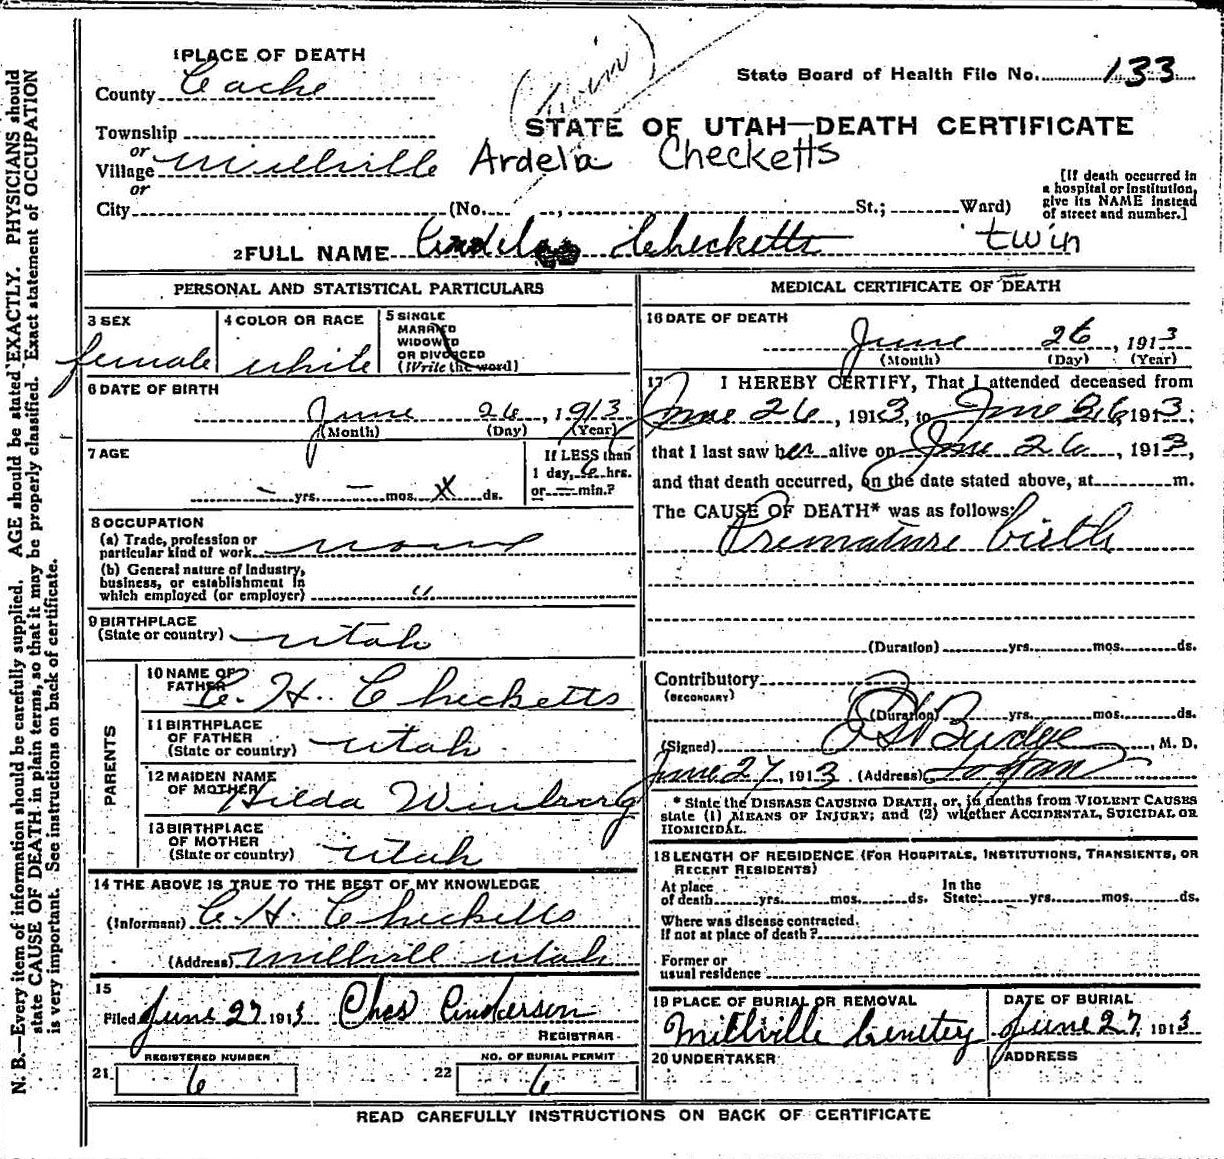 1 PLACE OF DEATH
(twin)
State Board of Health File No. 133
County Cache
STATE OF UTAH—DEATH CERTIFICATE
Township
or
Village Millville
Ardela Checketts
or
[If death occurred in a hospital or institution, give its NAME instead of street and number.]
City (No. , St.; Ward)
2 FULL NAME Checketts twin
PERSONAL AND STATISTICAL PARTICULARS
3 SEX
female
4 COLOR OR RACE
white
5 SINGLE
MARRIED
WIDOWED
OR DIVORCED
(Write the word)
6 DATE OF BIRTH
June 26, 1913
(Month) (Day) (Year)
7 AGE
If LESS than
1 day, 6 hrs.
— yrs. — mos. X ds.
or — min.?
8 OCCUPATION
(a) Trade, profession or
particular kind of work none
(b) General nature of industry,
business, or establishment in
which employed (or employer) "
9 BIRTHPLACE
(State or country) Utah
PARENTS
10 NAME OF
FATHER C. H. Checketts
11 BIRTHPLACE
OF FATHER
(State or country) Utah
12 MAIDEN NAME
OF MOTHER Hilda Winborg
13 BIRTHPLACE
OF MOTHER
(State or country) Utah
14 THE ABOVE IS TRUE TO THE BEST OF MY KNOWLEDGE
(Informant) C. H. Checketts
(Address) Millvill Utah
15
Filed June 27 1913 Chas Anderson
REGISTRAR
21 REGISTERED NUMBER
6
22 NO. OF BURIAL PERMIT
6
MEDICAL CERTIFICATE OF DEATH
16 DATE OF DEATH
June 26, 1913
(Month) (Day) (Year)
17 I HEREBY CERTIFY, That I attended deceased from
June 26, 1913, to June 26, 1913;
that I last saw her alive on June 26, 1913,
and that death occurred, on the date stated above, at m.
The CAUSE OF DEATH* was as follows:
Premature birth
(Duration) yrs. mos. ds.
Contributory
(SECONDARY)
(Duration) yrs. mos. ds.
(Signed) Budge, M. D.
June 27, 1913 (Address) Logan
* State the DISEASE CAUSING DEATH, or, in deaths from VIOLENT CAUSES
state (1) MEANS OF INJURY; and (2) whether ACCIDENTAL, SUICIDAL OR
HOMICIDAL.
18 LENGTH OF RESIDENCE (FOR HOSPITALS, INSTITUTIONS, TRANSIENTS, OR
RECENT RESIDENTS)
At place
of death yrs. mos. ds.
In the
State yrs. mos. ds.
Where was disease contracted,
If not at place of death?
Former or
usual residence
19 PLACE OF BURIAL OR REMOVAL
Millville Cemetey
DATE OF BURIAL
June 27, 1913
20 UNDERTAKER
ADDRESS
READ CAREFULLY INSTRUCTIONS ON BACK OF CERTIFICATE
N. B.—Every item of information should be carefully supplied. AGE should be stated EXACTLY. PHYSICIANS should
state CAUSE OF DEATH in plain terms, so that it may be properly classified. Exact statement of OCCUPATION
is very important. See instructions on back of certificate.